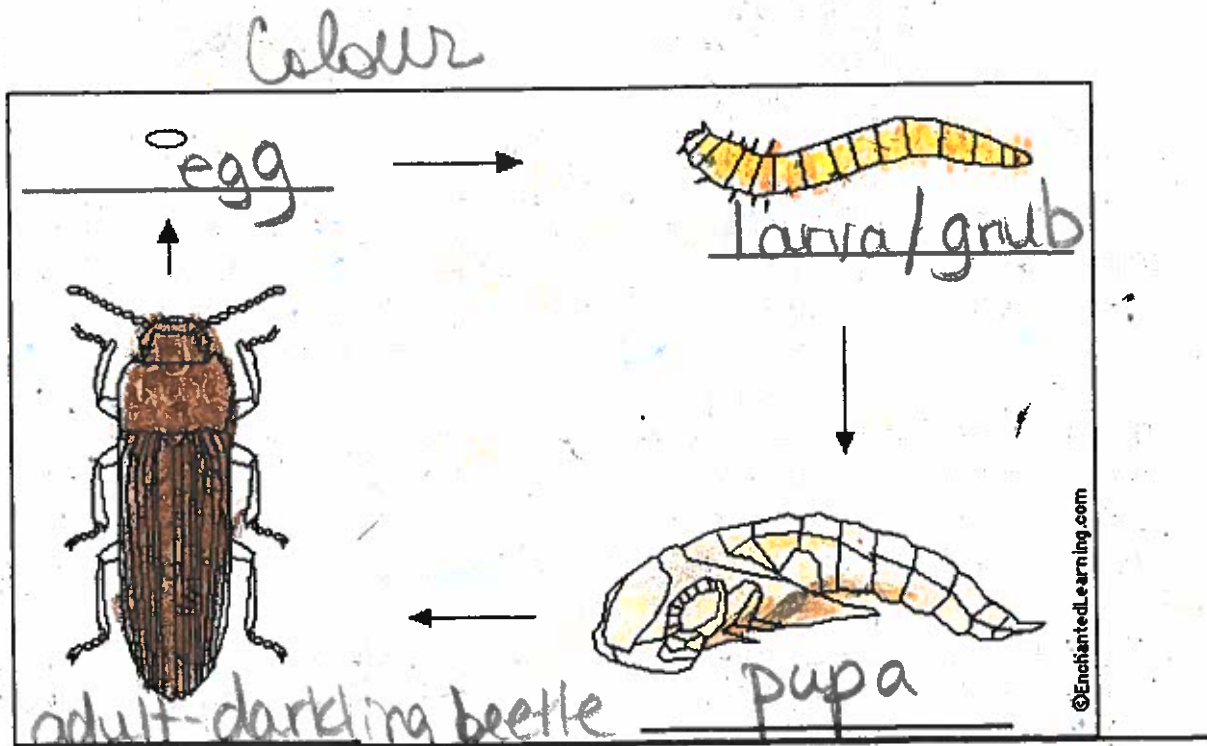 Colour
egg
larva/grub
pupa
adult-darkling beetle
©EnchantedLearning.com